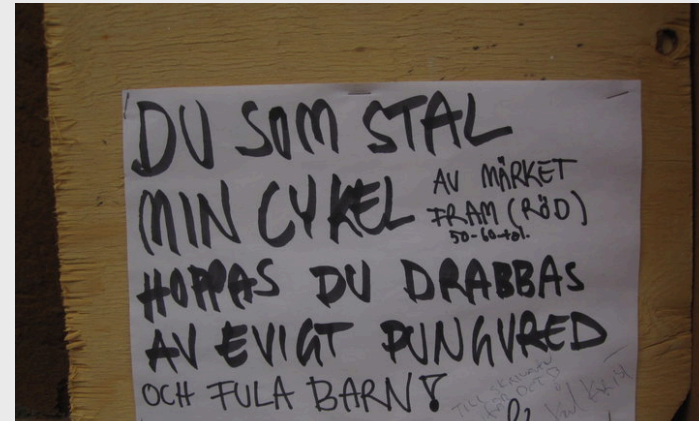 DU SOM STAL
MIN CYKEL AV MÄRKET
FRAM (RÖD)
50-60-tal.
HOPPAS DU DRABBAS
AV EVIGT PUNGVRED
OCH FULA BARN!
TILL